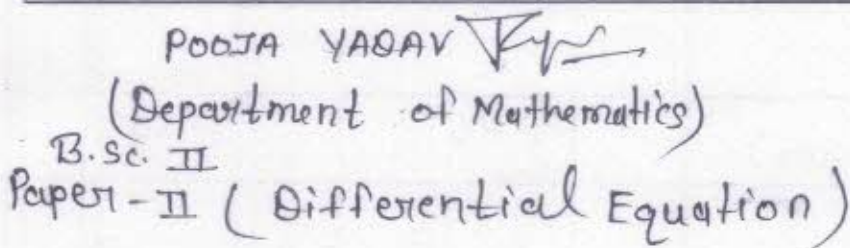 POOJA YADAV
(Department of Mathematics)
B.Sc. II
Paper-II ( Differential Equation )